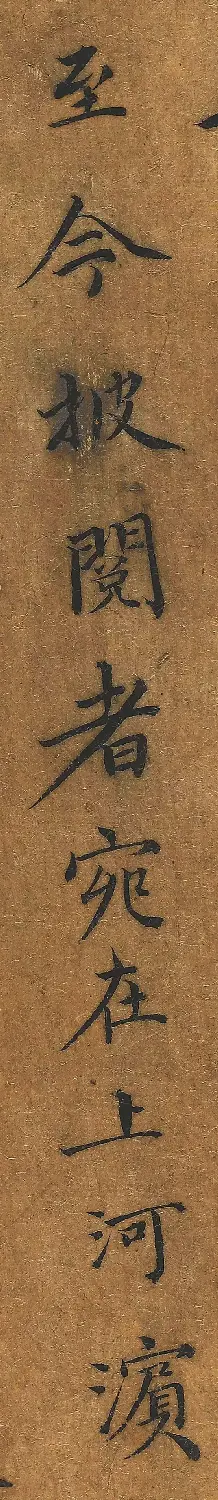 至今披閱者宛在上河濵